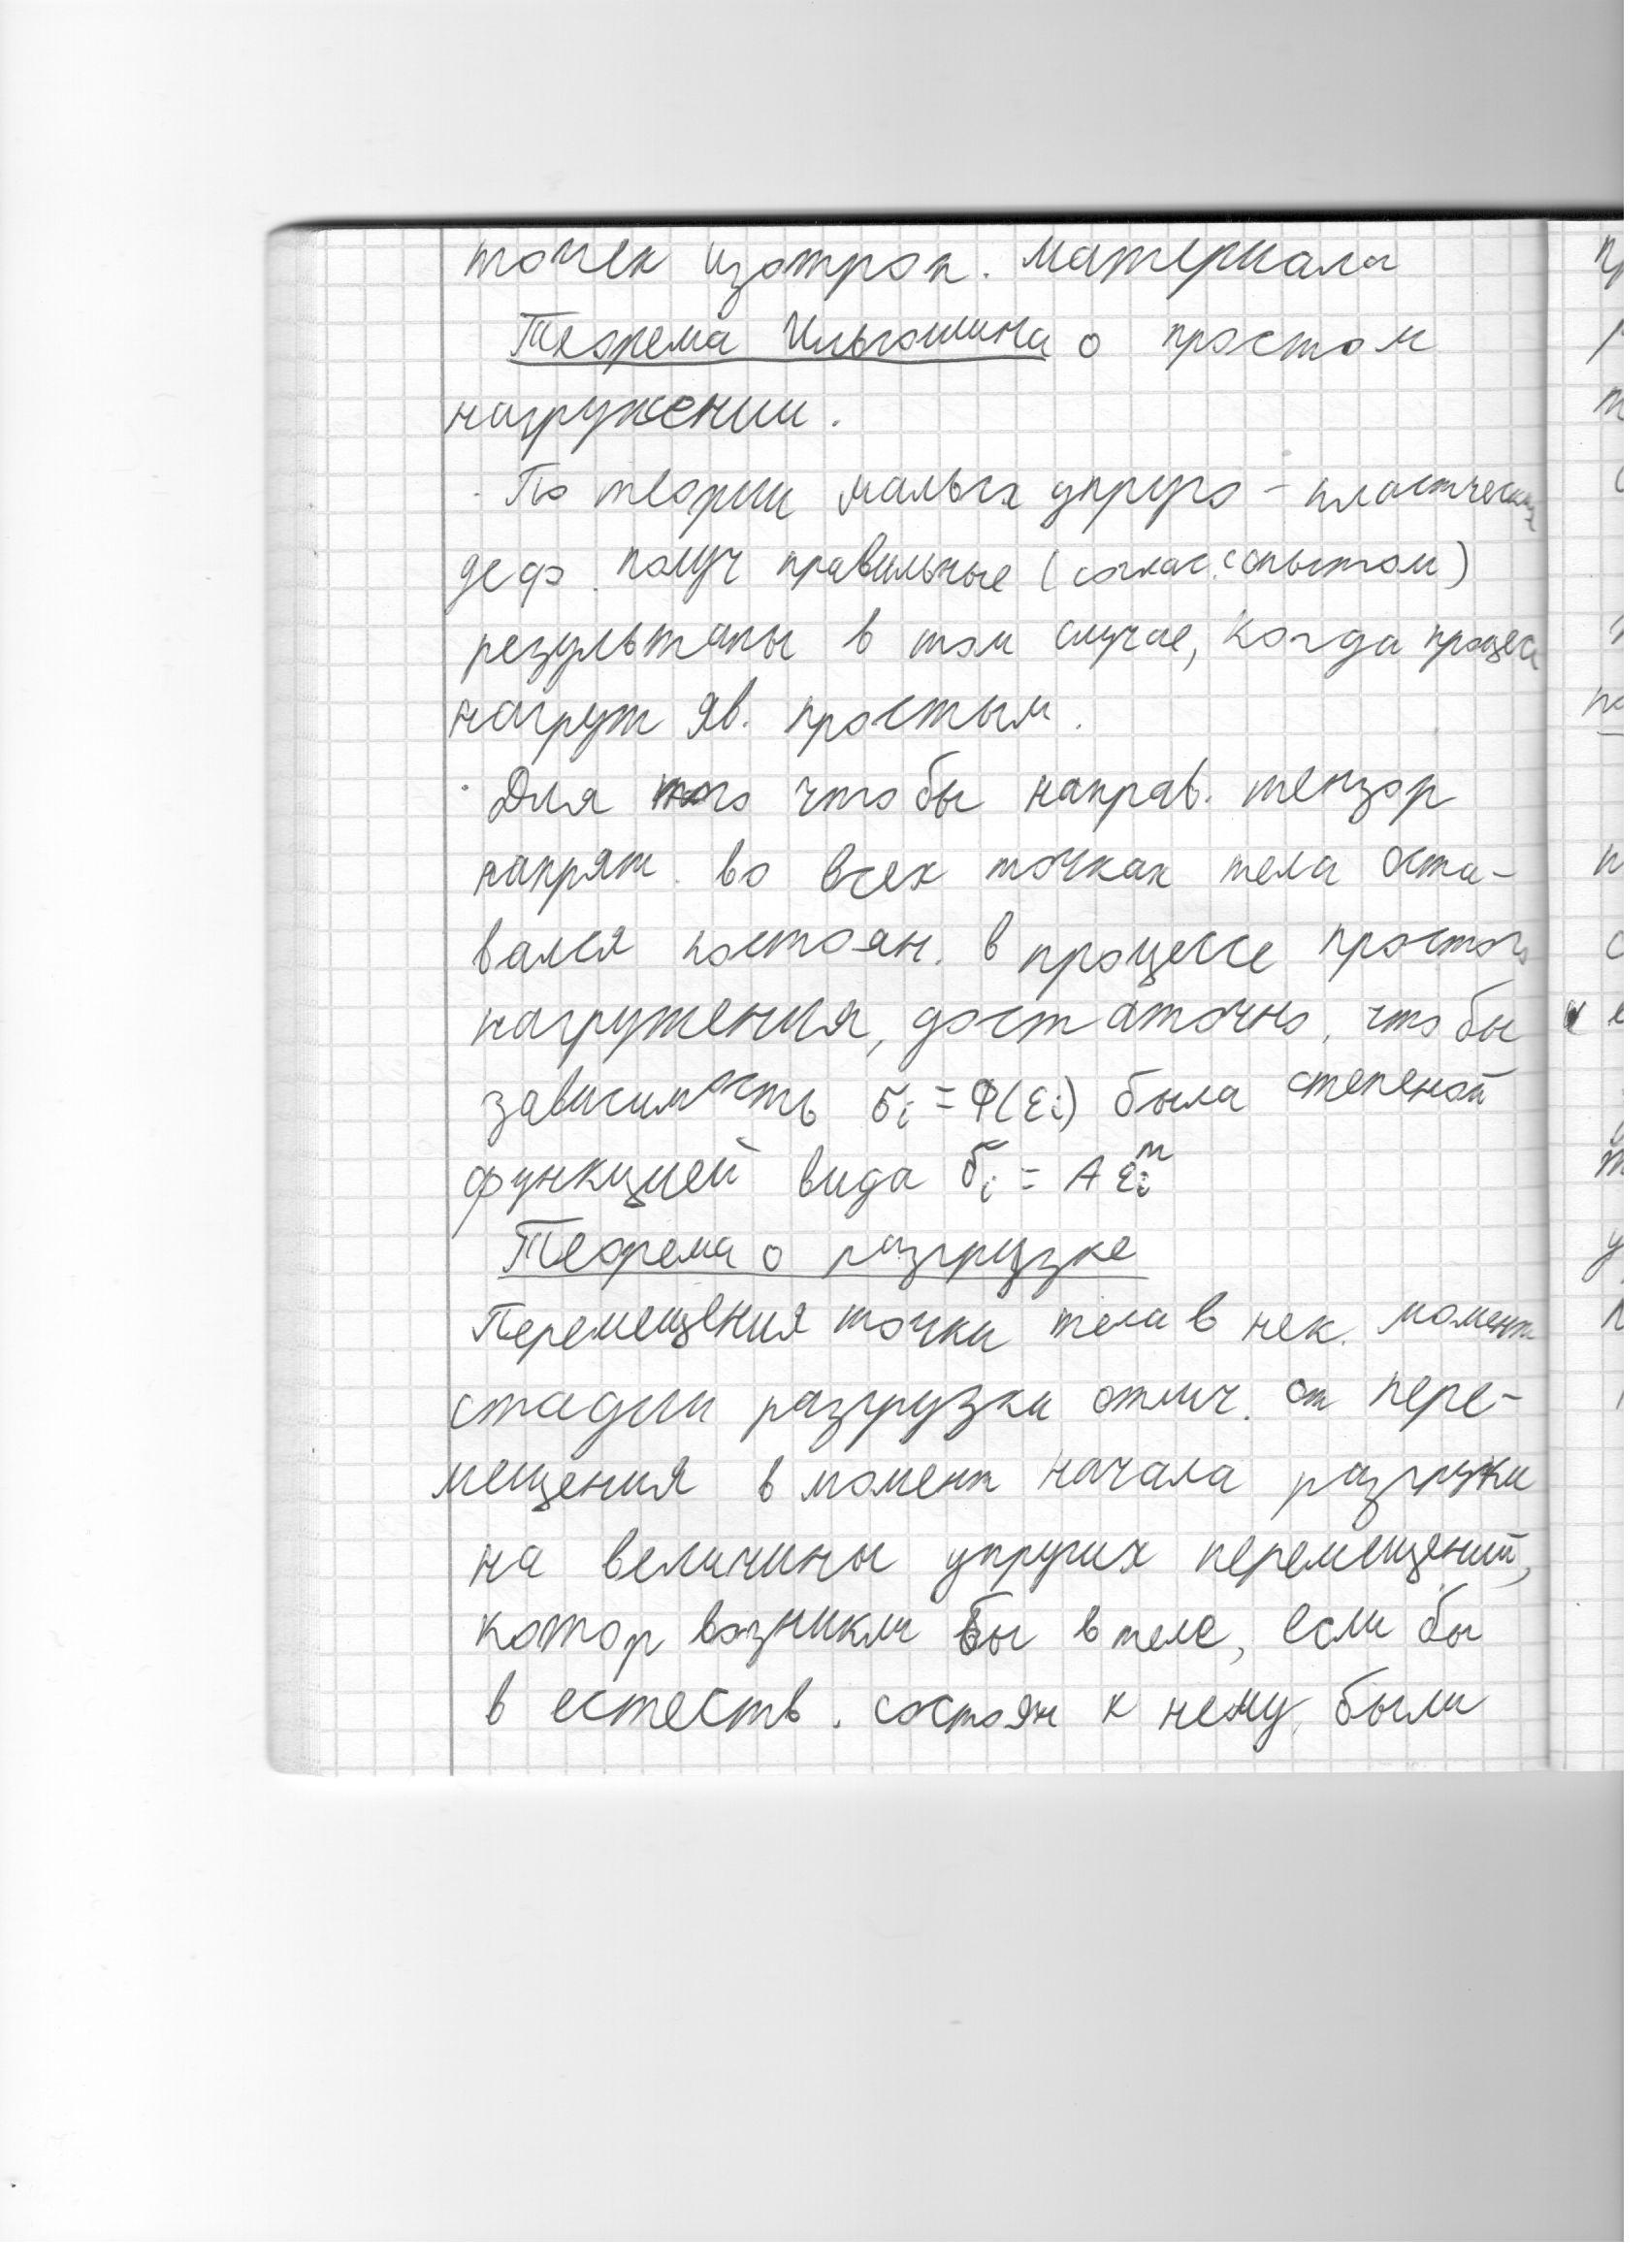 точек изотроп. материала
Теорема Ильюшина о простом
нагружении.
По теории малых упруго-пластических
деф. получ правильные (соглас. с опытом)
результаты в том случае, когда процесс
нагруж яв. простым.
Для того чтобы направ. тензор
напряж. во всех точках тела оста-
вался постоян. в процессе простого
нагружения, достаточно, чтобы
зависимость σi = Φ(εi) была степеной
функцией вида σi = A εi^m
Теорема о разгрузке
Перемещения точки тела в нек. момент
стадии разгрузки отлич. от пере-
мещения в момент начала разгрузки
на величины упругих перемещений,
котор возникли бы в теле, если бы
в естеств. состоян к нему были